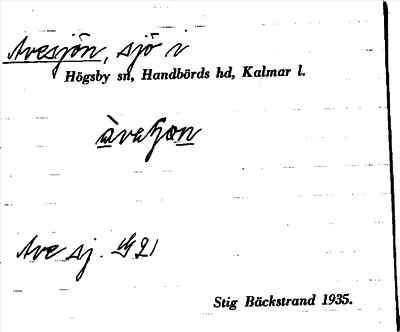 Avesjön, sjö i
Högsby sn, Handbörds hd, Kalmar l.
Ave sj. G21
Stig Bäckstrand 1935.